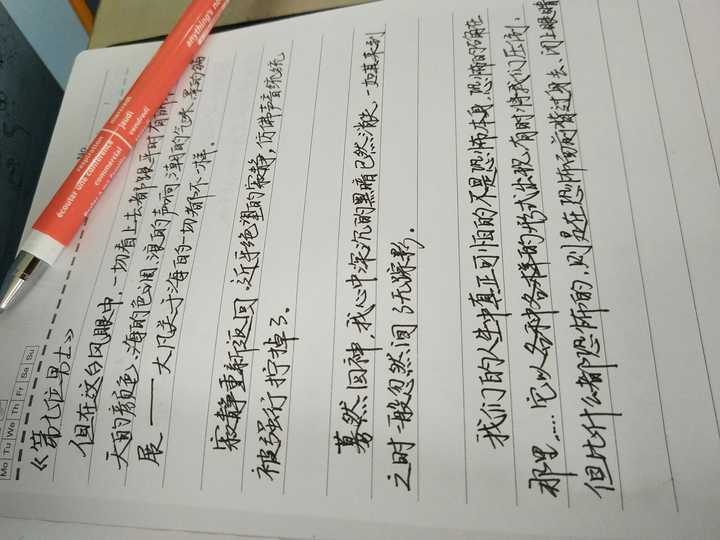 《第七位男士》
但在这台风眼中,一切看上去都跟平时有所
天的颜色、海的色调、浪的声响、潮的气味、景的铺
展——大凡关于海的一切都不一样。
寂静重新返回,近乎绝望的寂静,仿佛声音统统
被强行拧掉了。
蓦然回神,我心中深沉的黑暗已然消失,一如其来到
之时一般忽然间了无踪影。
我们的人生中真正可怕的不是恐怖本身,恐怖的确在
那里……它以各种各样的形式出现,有时将我们压制。
但比什么都恐怖的,则是在恐怖面前背过身去、闭上眼睛
No
Mo Tu We Th Fr Sa Su
anything's
respiration
mansion
écouter une conférence
jeudi
commercial
vendredi